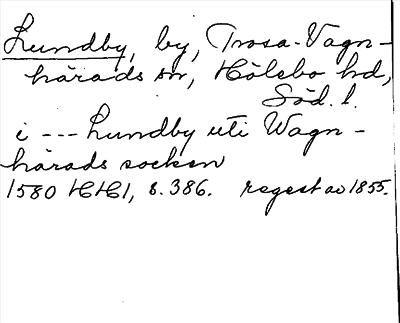 Lundby, by, Trosa-Vagn-
härads sn, Hölebo hd,
Söd. l.
i --- Lundby uti Wagn-
härads socken
1580 HH1, s. 386. regest av 1855.